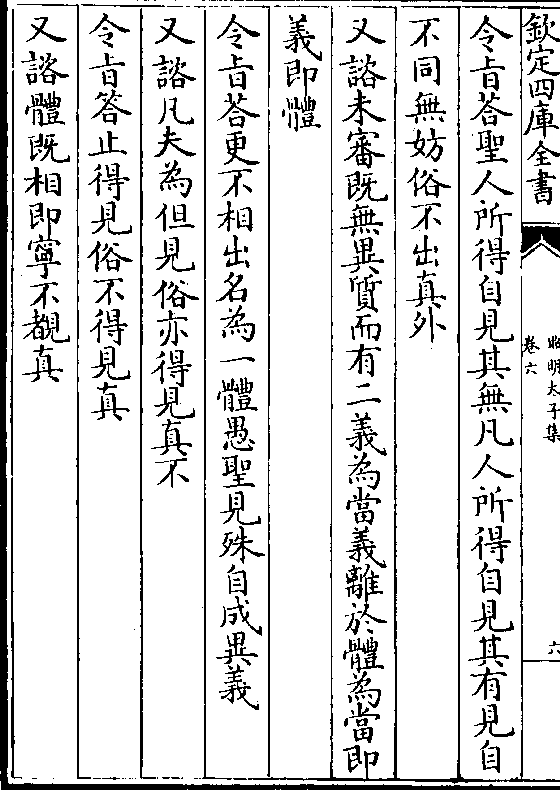 欽定四庫全書
昭明太子集
卷六
六
令旨答聖人所得自見其無凡人所得自見其有見自
不同無妨俗不出真外
又諮未審既無異質而有二義為當義離於體為當即
義即體
令旨荅更不相出名為一體愚聖見殊自成異義
又諮凡夫為但見俗亦得見真不
令旨答止得見俗不得見真
又諮體既相即寧不覩真